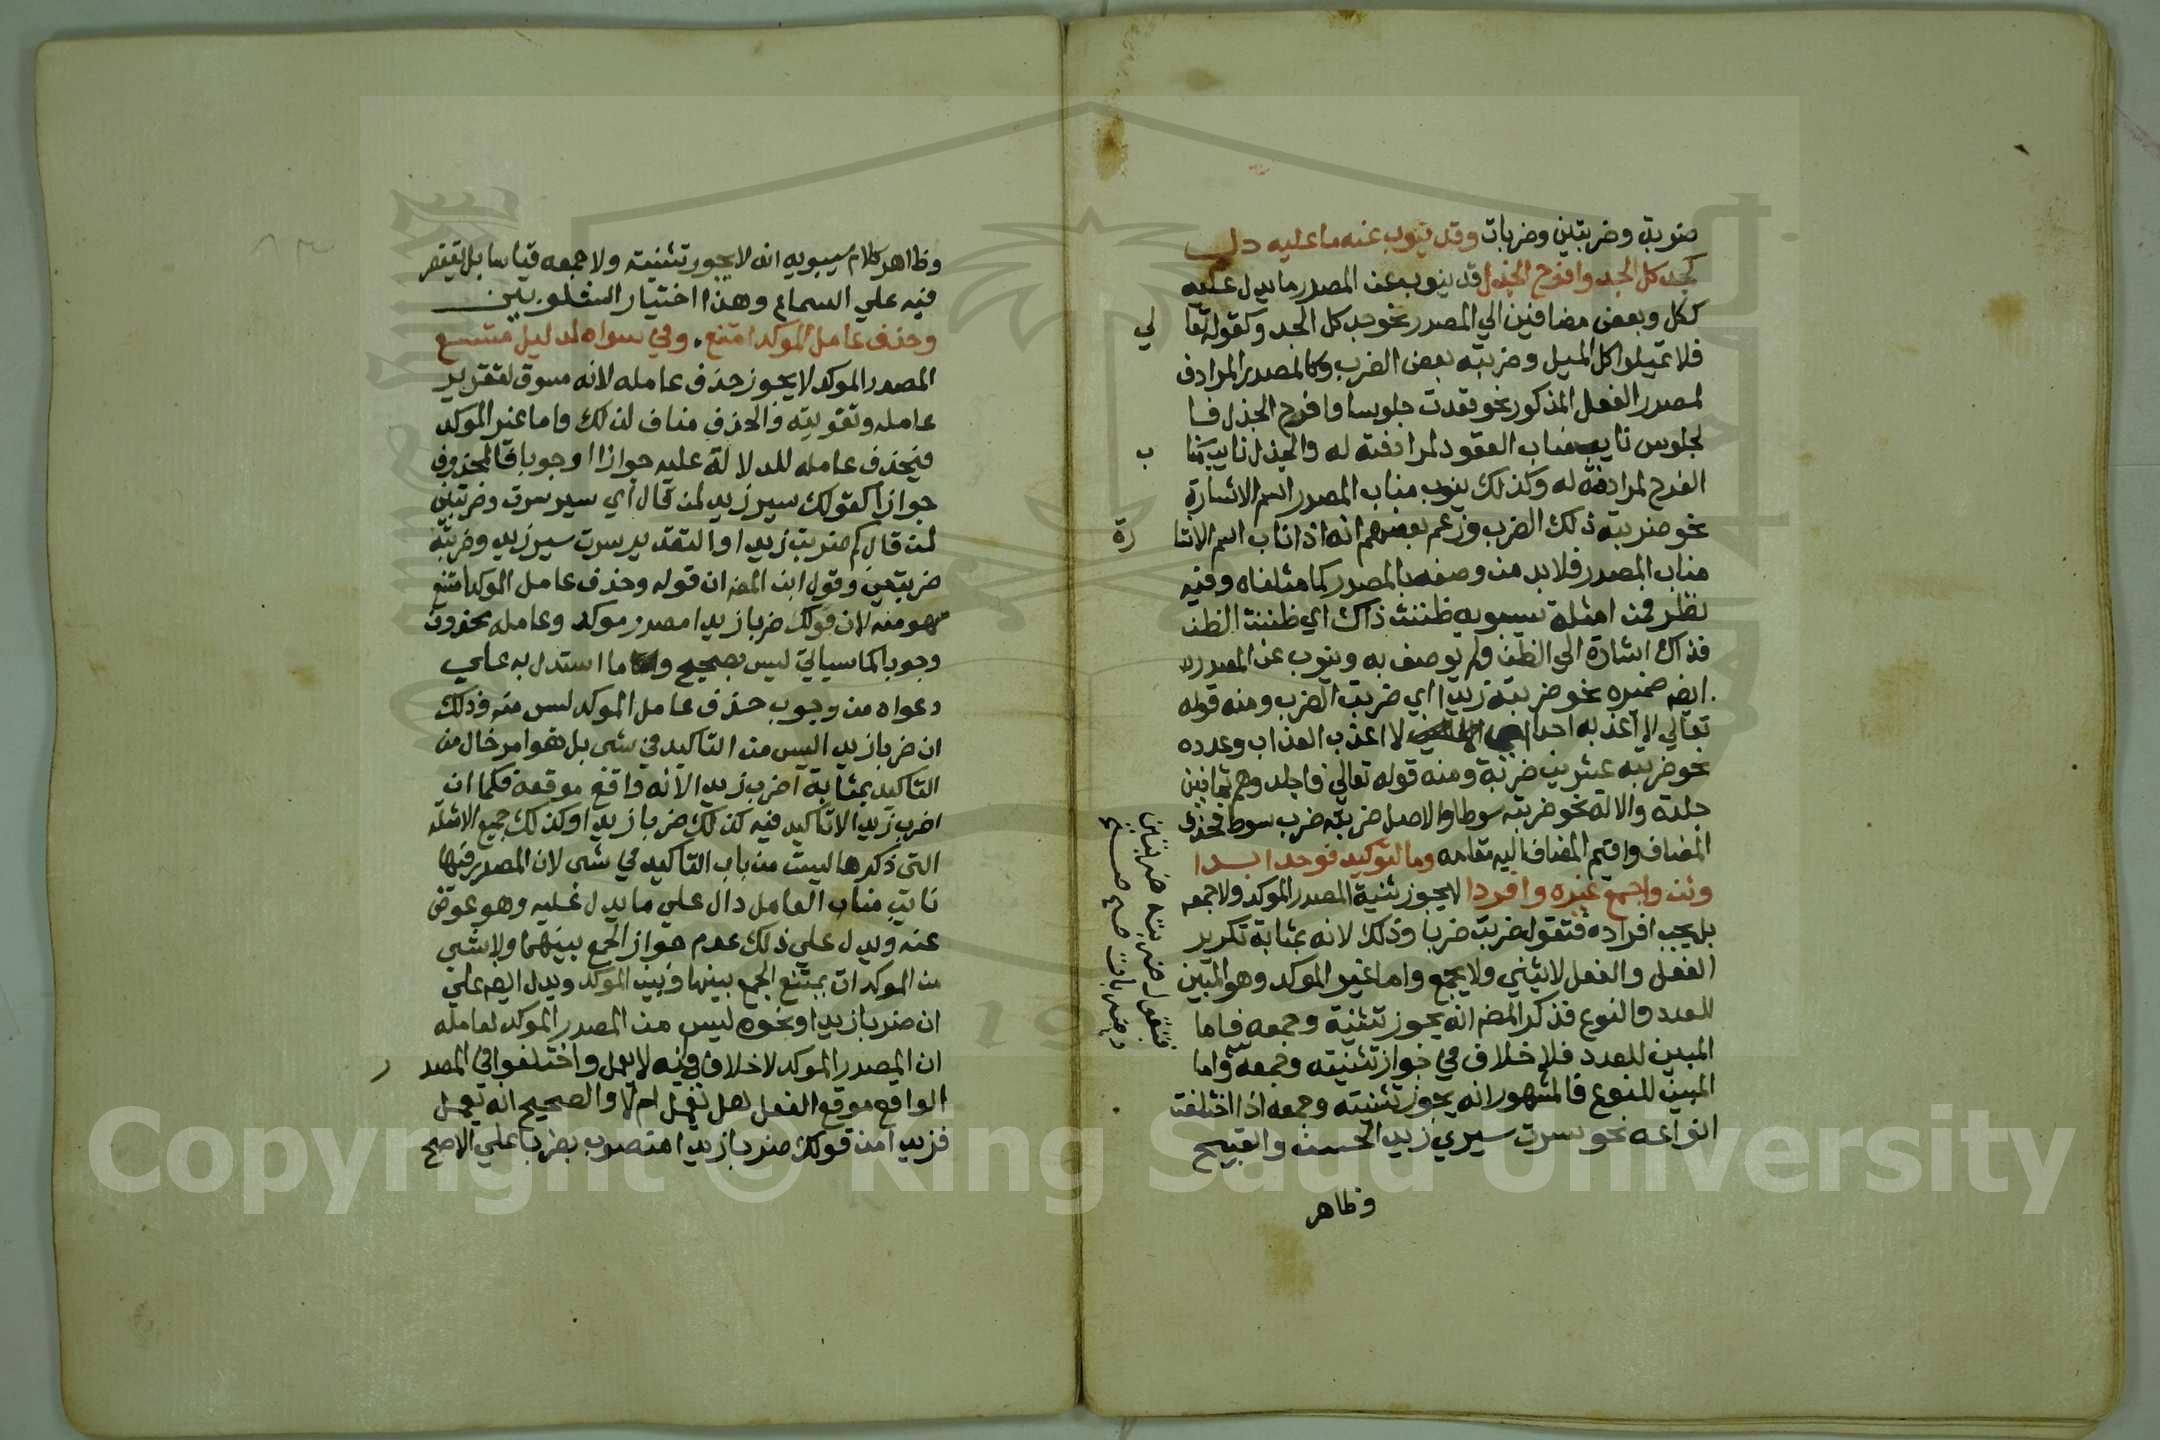 ضربة وضربتين وضربات وقد ينوب عنه ما عليه دل
كجد كل الجد وافرح الجذل قد ينوب عن المصدر ما يدل عليه
ككل وبعض مضافين الي المصدر نحو جد كل الجد وكقوله تعا لي
فلا تميلوا كل الميل وضربته بعض الضرب وكالمصدر المرادف
لمصدر الفعل المذكور نحو قعدت جلوسا وافرح الجذل فا
لجلوس نايب مناب القعود لمرادفته له والجذل نايب منا ب
الفرح لمرادفته له وكذلك ينوب مناب المصدر اسم الاشارة
نحو ضربته ذلك الضرب وزعم بعضهم انه اذا ناب اسم الاشا رة
مناب المصدر فلا بد من وصفه بالمصدر كما مثلناه وفيه
نظر فمن امثلة سيبويه ظننت ذاك اي ظننت الظن
فذاك اشارة الي الظن ولم يوصف به وينوب عن المصدر
ايضا ضميره نحو ضربته زيدا اي ضربت الضرب ومنه قوله
تعالي لا اعذبه احدا اي لا اعذب العذاب وعدده
نحو ضربته عشرين ضربة ومنه قوله تعالي فاجلدوهم ثمانين
جلدة والالة نحو ضربته سوطا والاصل ضربته ضرب سوط فحذف
المضاف واقيم المضاف اليه مقامه وما لتوكيد فوحد ابدا
وثن واجمع غيره وافردا لا يجوز تثنية المصدر الموكد ولا جمعه
بل يجب افراده فتقول ضربت ضربا وذلك لانه بمثابة تكرير
الفعل والفعل لا يثني ولا يجمع واما غير الموكد وهو المبين
للعدد والنوع فذكر المص انه يجوز تثنيته وجمعه فاما
المبين للعدد فلا خلاف في جواز تثنيته وجمعه واما
المبين للنوع فالمشهور انه يجوز تثنيته وجمعه اذا اختلفت
انواعه نحو سرت سيري زيد الحسن والقبيح
وظاهر
فتقول ضربته ضربتين
وضربات صح صح
وظاهر كلام سيبويه انه لا يجوز تثنيته ولا جمعه قياسا بل يقتصر
فيه علي السماع وهذا اختيار الشلوبين
وحذف عامل الموكد امتنع . وفي سواه لدليل متسع
المصدر الموكد لا يجوز حذف عامله لانه مسوق لتقرير
عامله وتقويته والحذف مناف لذلك واما غير الموكد
فيحذف عامله للدلالة عليه جوازا او وجوبا فالمحذوف
جوازا كقولك سير زيد لمن قال اي سير سرت وضربتين
لمن قال كم ضربت زيدا والتقدير سرت سير زيد وضربته
ضربتين وقول ابن المص ان قوله وحذف عامل الموكد امتنع
سهو منه لان قولك ضربا زيدا مصدر موكد وعامله محذوف
وجوبا كما سياتي ليس بصحيح وما استدل به علي
دعواه من وجوب حذف عامل الموكد ليس منه وذلك
ان ضربا زيدا ليس من التاكيد في شي بل هو امر خال من
التاكيد بمثابة اضرب زيدا لانه واقع موقعه فكما ان
اضرب زيدا لا تاكيد فيه كذلك ضربا زيدا وكذلك جميع الامثلة
التي ذكرها ليست من باب التاكيد في شي لان المصدر فيها
نايب مناب العامل دال علي ما يدل عليه وهو عوض
عنه ويدل علي ذلك عدم جواز الجمع بينهما ولا شي
من الموكدات يمتنع الجمع بينها وبين الموكد ويدل ايضا علي
ان ضربا زيدا ونحوه ليس من المصدر الموكد لعامله
ان المصدر الموكد لا خلاف فيه لا يعمل واختلفوا في المصد ر
الواقع موقع الفعل هل يعمل ام لا والصحيح انه يعمل
فزيدا من قولك ضربا زيدا منصوب بضربا علي الاصح
Copyright © King Saud University